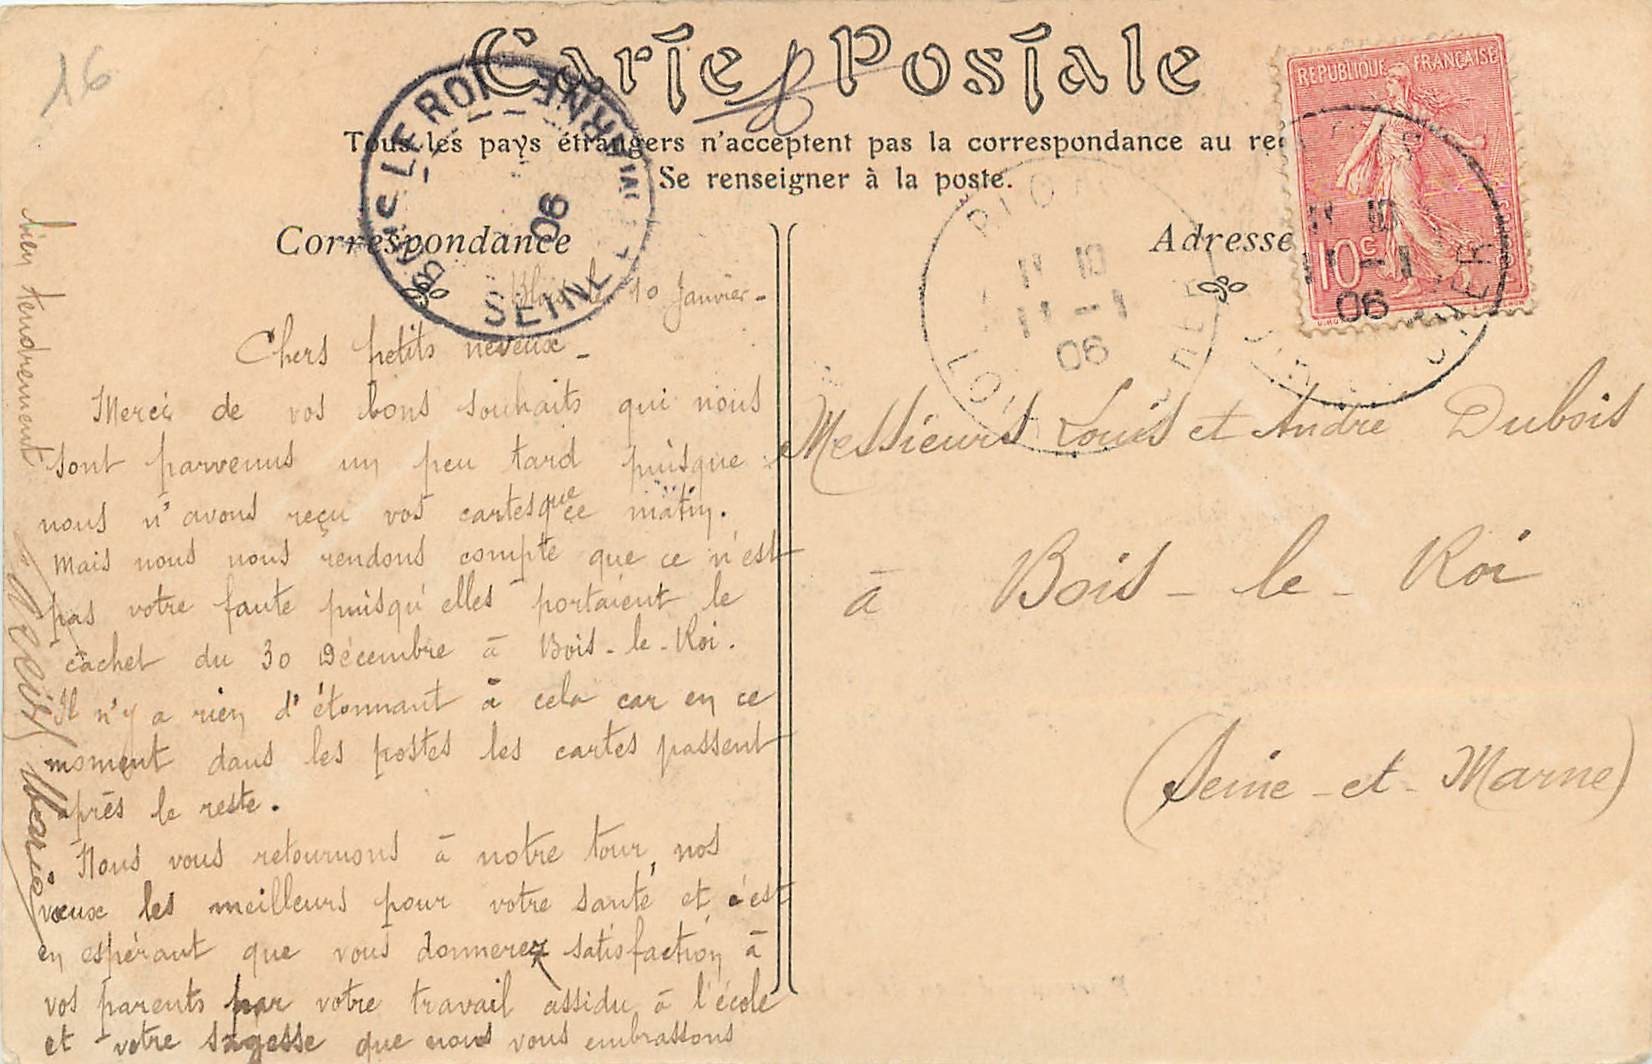 16
Carte Postale
Tous les pays étrangers n'acceptent pas la correspondance au
Se renseigner à la poste.
Correspondance
Adresse
REPUBLIQUE FRANÇAISE
10c
BOIS-LE ROI
SEINE-
MARNE
06
11-1
06
11-1
06
le 10 Janvier-
Chers petits neveux-
Merci de vos bons souhaits qui nous
sont parvenus un peu tard puisque
nous n'avons reçu vos cartes que ce matin.
Mais nous nous rendons compte que ce n'est
pas votre faute puisqu'elles portaient le
cachet du 30 Décembre à Bois-le-Roi.
Il n'y a rien d'étonnant à cela car en ce
moment dans les postes les cartes passent
après le reste.
Nous vous retournons à notre tour, nos
vœux les meilleurs pour votre santé et c'est
en espérant que vous donnerez satisfaction à
vos parents par votre travail assidu à l'école
et votre sagesse que nous vous embrassons
bien tendrement
Messieurs Louis et André Dubois
à Bois-le-Roi
(Seine-et-Marne)